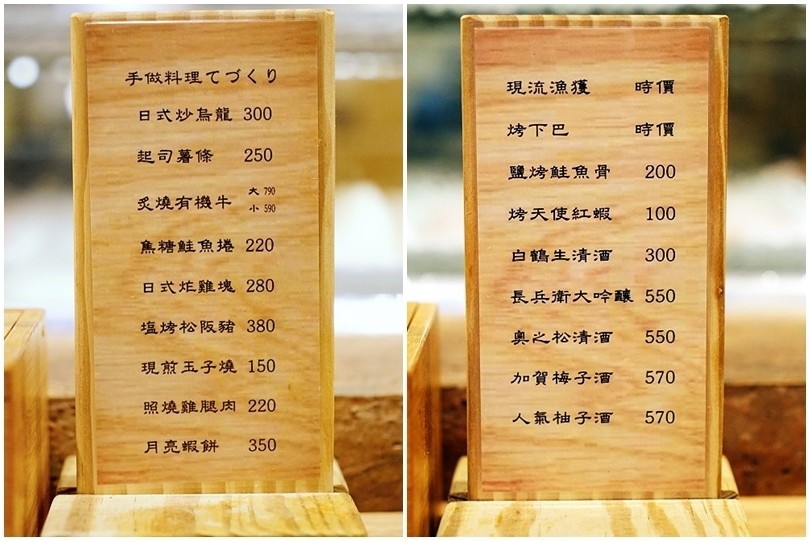 手做料理てづくり
日式炒烏龍 300
起司薯條 250
炙燒有機牛 大 790 小 590
焦糖鮭魚捲 220
日式炸雞塊 280
塩烤松阪豬 380
現煎玉子燒 150
照燒雞腿肉 220
月亮蝦餅 350
現流漁獲 時價
烤下巴 時價
鹽烤鮭魚骨 200
烤天使紅蝦 100
白鶴生清酒 300
長兵衛大吟釀 550
奧之松清酒 550
加賀梅子酒 570
人氣柚子酒 570